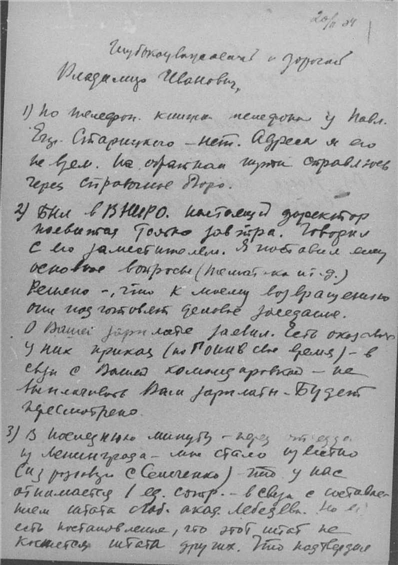 Глубокоуважаемый и дорогой
Владимир Иванович,
1) По телефон. книжке телефона у Павл.
Егор. Старицкого – нет. Адреса я его
не
На обратном пути справлюсь
через справочное бюро.
2) Был в ВИЭРО. Настоящий директор
только завтра. Говорил
с его заместителем. Я поставил ему
основное вопросы (
и т.д.)
Решено –, что к моему возвращению
они подготовят деловое заседание.
О Вашей зарплате заявил. Есть оказ.
у них приказ (по
в свое время) – в
связи с Вашей командировкой – не
выплачивать Вам зарплаты. Будет
пересмотрено.
3) В последнюю минуту – перед
из Ленинграда – мне стало известно
(из разговора с Семеченко) – что у нас
отнимается 1 ед. сотр. – в связи с составле-
нием штата лаб. акад. Лебедева. Но
есть постановление, что этот штат не
касается штата других. Что подтвердил